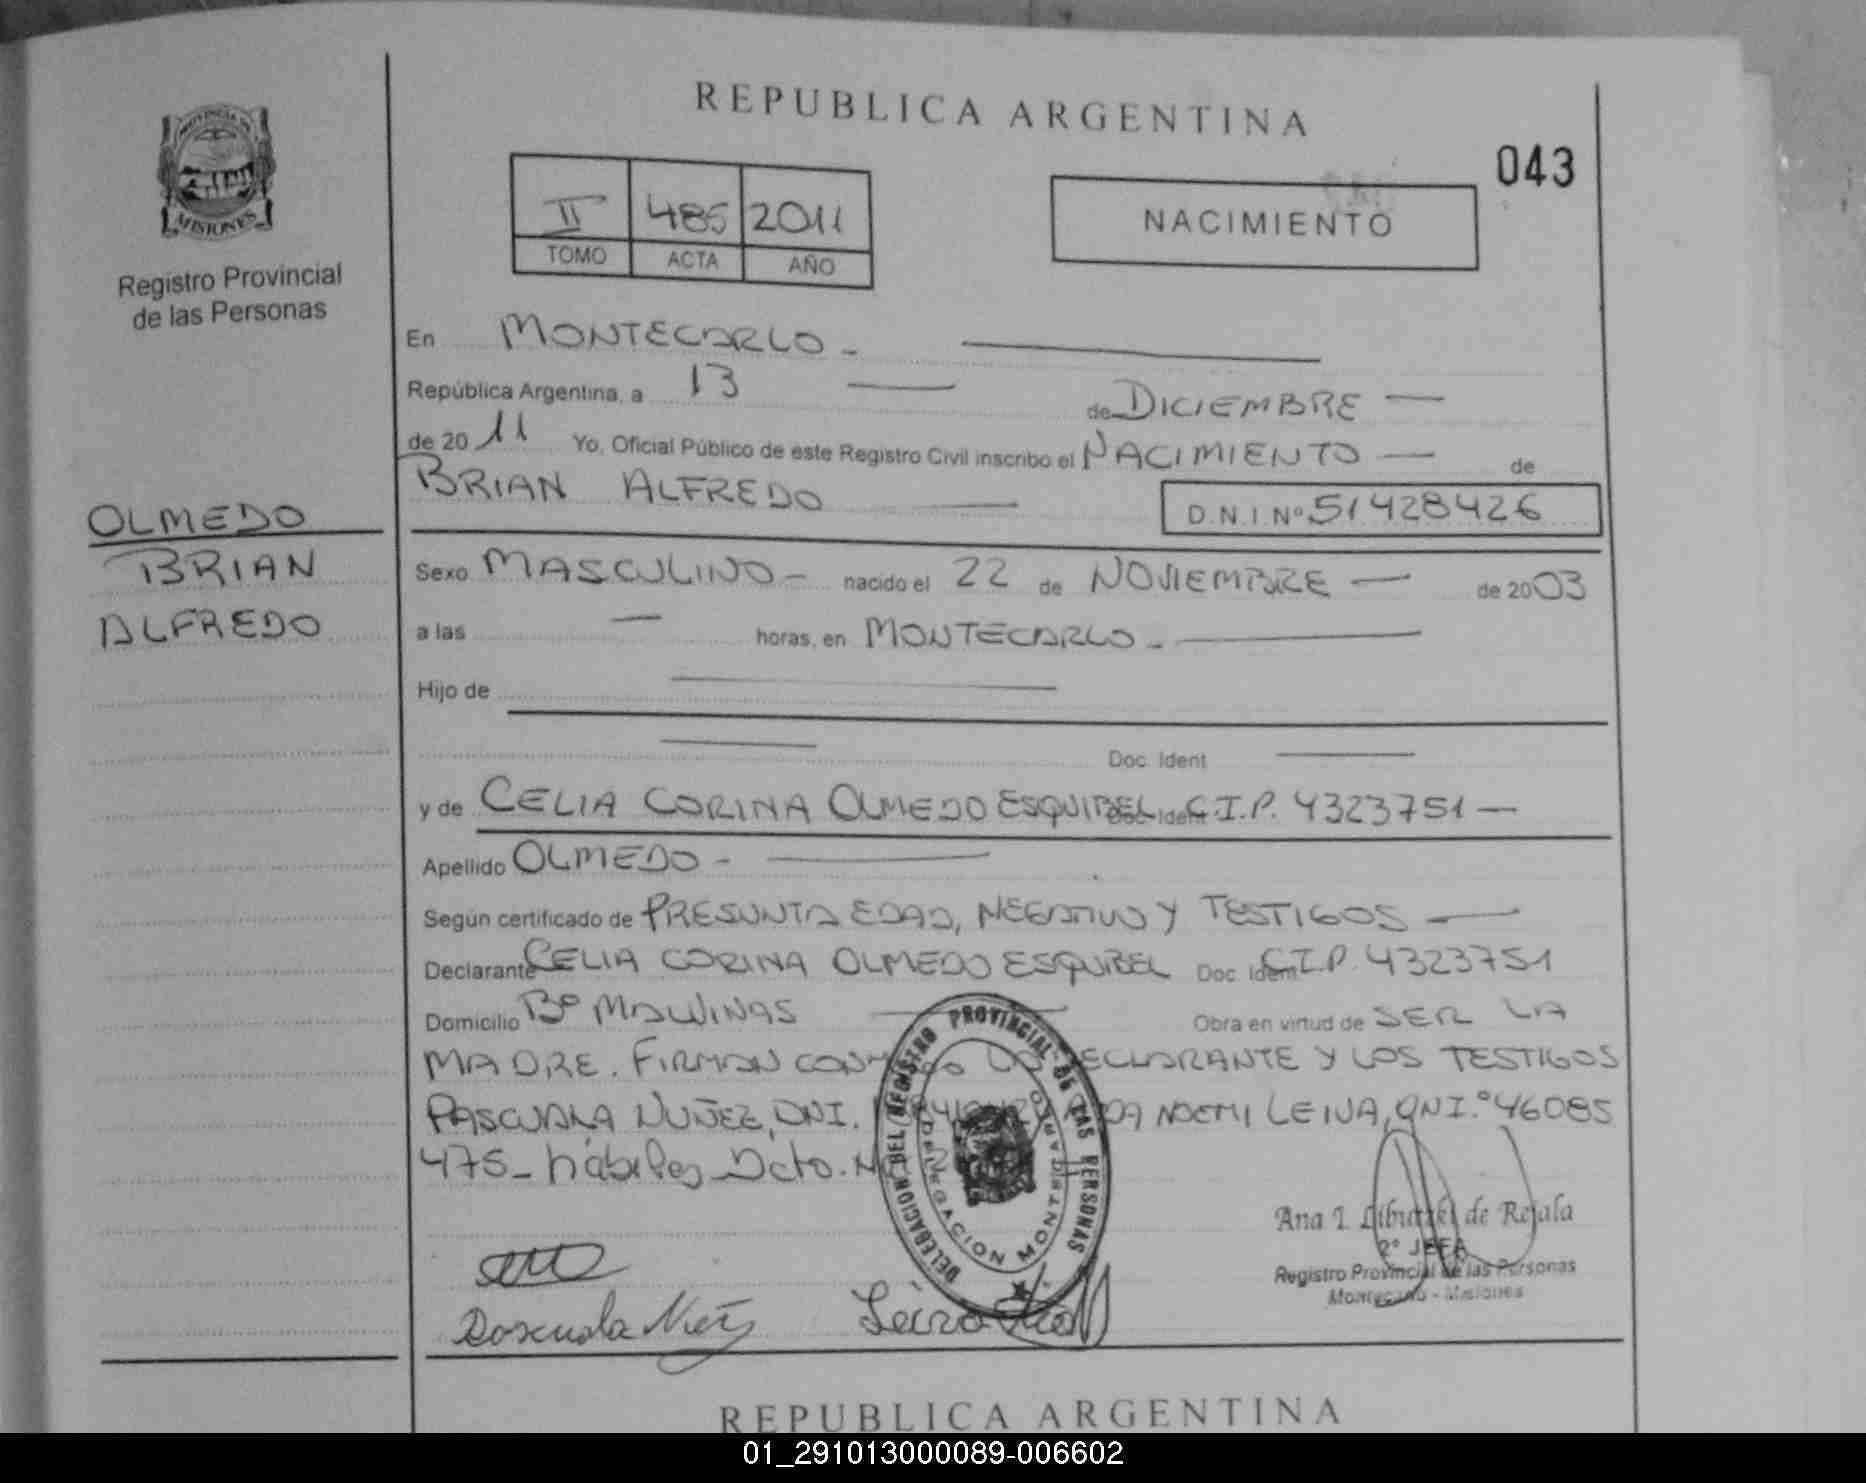 REPUBLICA ARGENTINA
043
PROVINCIA DE
MISIONES
Registro Provincial
de las Personas
II 485 2011
TOMO ACTA AÑO
NACIMIENTO
En MONTECARLO -
República Argentina, a 13 — de DICIEMBRE —
de 20 11 Yo, Oficial Público de este Registro Civil inscribo el NACIMIENTO — de
BRIAN ALFREDO — D.N.I. Nº 51428426
OLMEDO
BRIAN
ALFREDO
Sexo MASCULINO - nacido el 22 de NOVIEMBRE — de 2003
a las — horas, en MONTECARLO -
Hijo de —
— Doc. Ident —
y de CELIA CORINA OLMEDO ESQUIBEL Doc. Ident C.I.P. 4323751 —
Apellido OLMEDO -
Según certificado de PRESUNTA EDAD, NEGATIVO Y TESTIGOS —
Declarante CELIA CORINA OLMEDO ESQUIBEL Doc. Ident C.I.P. 4323751
Domicilio Bº MALVINAS — Obra en virtud de SER LA
MADRE. FIRMAN LA DECLARANTE Y LOS TESTIGOS
PASCUALA NUÑEZ, DNI. NOEMI LEIVA, DNI.º 46085
475 - hábiles - Dcto.
DELEGACION DEL REGISTRO PROVINCIAL DE LAS PERSONAS
DELEGACION MONTECARLO
Ana I. de Rejala
2º JEFA
Registro Provincial de las Personas
Montecarlo - Misiones
Pascuala
REPUBLICA ARGENTINA
01_291013000089-006602